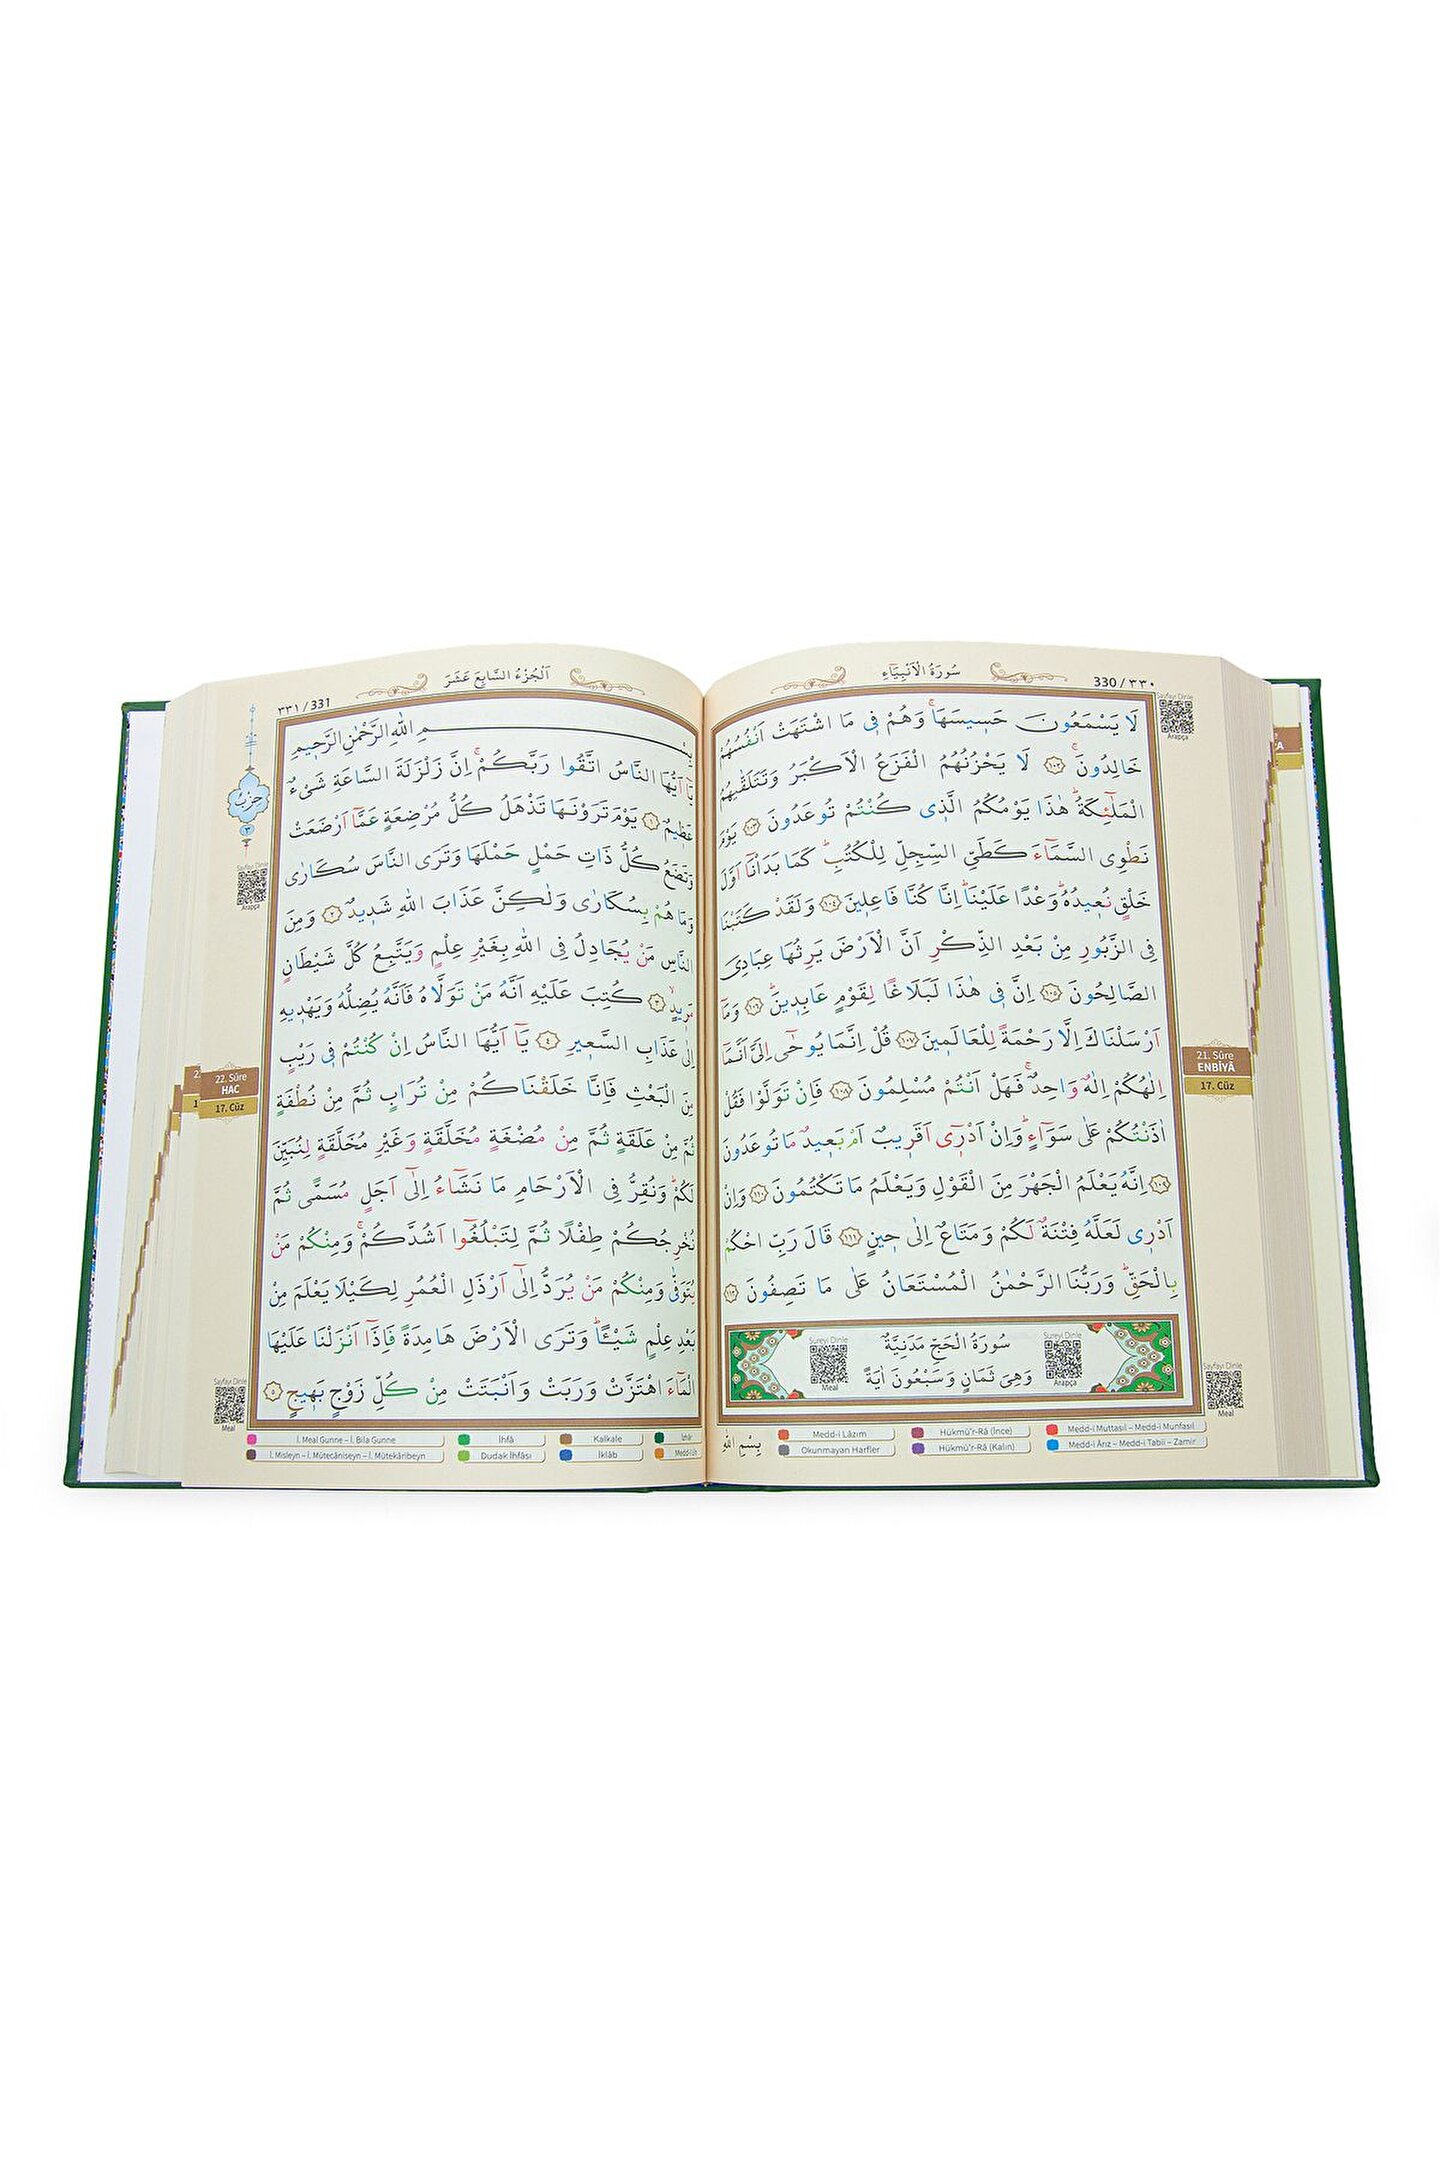 سُورَةُ الْاَنْبِيَٓاءِ
330 / ٣٣٠
لَا يَسْمَعُونَ حَسٖيسَهَاۚ وَهُمْ فٖي مَا اشْتَهَتْ اَنْفُسُهُمْ
خَالِدُونَۚ ﴿١٠٢﴾ لَا يَحْزُنُهُمُ الْفَزَعُ الْاَكْبَرُ وَتَتَلَقّٰيهُمُ
الْمَلٰٓئِكَةُۜ هٰذَا يَوْمُكُمُ الَّذٖي كُنْتُمْ تُوعَدُونَ ﴿١٠٣﴾ يَوْمَ
نَطْوِي السَّمَٓاءَ كَطَيِّ السِّجِلِّ لِلْكُتُبِۜ كَمَا بَدَأْنَٓا اَوَّلَ
خَلْقٍ نُعٖيدُهُۜ وَعْدًا عَلَيْنَاۜ اِنَّا كُنَّا فَاعِلٖينَ ﴿١٠٤﴾ وَلَقَدْ كَتَبْنَا
فِي الزَّبُورِ مِنْ بَعْدِ الذِّكْرِ اَنَّ الْاَرْضَ يَرِثُهَا عِبَادِيَ
الصَّالِحُونَ ﴿١٠٥﴾ اِنَّ فٖي هٰذَا لَبَلَاغًا لِقَوْمٍ عَابِدٖينَۜ ﴿١٠٦﴾ وَمَٓا
اَرْسَلْنَاكَ اِلَّا رَحْمَةً لِلْعَالَمٖينَ ﴿١٠٧﴾ قُلْ اِنَّمَا يُوحٰٓى اِلَيَّ اَنَّمَٓا
اِلٰهُكُمْ اِلٰهٌ وَاحِدٌۚ فَهَلْ اَنْتُمْ مُسْلِمُونَ ﴿١٠٨﴾ فَاِنْ تَوَلَّوْا فَقُلْ
اٰذَنْتُكُمْ عَلٰى سَوَٓاءٍۜ وَاِنْ اَدْرٖٓي اَقَرٖيبٌ اَمْ بَعٖيدٌ مَا تُوعَدُونَ
﴿١٠٩﴾ اِنَّهُ يَعْلَمُ الْجَهْرَ مِنَ الْقَوْلِ وَيَعْلَمُ مَا تَكْتُمُونَ ﴿١١٠﴾ وَاِنْ
اَدْرٖي لَعَلَّهُ فِتْنَةٌ لَكُمْ وَمَتَاعٌ اِلٰى حٖينٍ ﴿١١١﴾ قَالَ رَبِّ احْكُمْ
بِالْحَقِّۜ وَرَبُّنَا الرَّحْمٰنُ الْمُسْتَعَانُ عَلٰى مَا تَصِفُونَ ﴿١١٢﴾
سُورَةُ الْحَجِّ مَدَنِيَّةٌ
وَهِيَ ثَمَانٍ وَسَبْعُونَ اٰيَةً
Sureyi Dinle
Meal
Sureyi Dinle
Arapça
Sayfayı Dinle
Arapça
21. Sûre
ENBİYÂ
17. Cüz
Sayfayı Dinle
Meal
بِسْمِ اللّٰهِ
Medd-i Lâzım
Hükmü'r-Râ (İnce)
Medd-i Muttasıl – Medd-i Munfasıl
Okunmayan Harfler
Hükmü'r-Râ (Kalın)
Medd-i Ârız – Medd-i Tabii – Zamir
اَلْجُزْءُ السَّابِعَ عَشَرَ
٣٣١ / 331
بِسْمِ اللّٰهِ الرَّحْمٰنِ الرَّحٖيمِ
يَٓا اَيُّهَا النَّاسُ اتَّقُوا رَبَّكُمْۚ اِنَّ زَلْزَلَةَ السَّاعَةِ شَيْءٌ
عَظٖيمٌ ﴿١﴾ يَوْمَ تَرَوْنَهَا تَذْهَلُ كُلُّ مُرْضِعَةٍ عَمَّٓا اَرْضَعَتْ
وَتَضَعُ كُلُّ ذَاتِ حَمْلٍ حَمْلَهَا وَتَرَى النَّاسَ سُكَارٰى
وَمَا هُمْ بِسُكَارٰى وَلٰكِنَّ عَذَابَ اللّٰهِ شَدٖيدٌ ﴿٢﴾ وَمِنَ
النَّاسِ مَنْ يُجَادِلُ فِي اللّٰهِ بِغَيْرِ عِلْمٍ وَيَتَّبِعُ كُلَّ شَيْطَانٍ
مَرٖيدٍۙ ﴿٣﴾ كُتِبَ عَلَيْهِ اَنَّهُ مَنْ تَوَلَّاهُ فَاَنَّهُ يُضِلُّهُ وَيَهْدٖيهِ
اِلٰى عَذَابِ السَّعٖيرِ ﴿٤﴾ يَٓا اَيُّهَا النَّاسُ اِنْ كُنْتُمْ فٖي رَيْبٍ
مِنَ الْبَعْثِ فَاِنَّا خَلَقْنَاكُمْ مِنْ تُرَابٍ ثُمَّ مِنْ نُطْفَةٍ
ثُمَّ مِنْ عَلَقَةٍ ثُمَّ مِنْ مُضْغَةٍ مُخَلَّقَةٍ وَغَيْرِ مُخَلَّقَةٍ لِنُبَيِّنَ
لَكُمْۜ وَنُقِرُّ فِي الْاَرْحَامِ مَا نَشَٓاءُ اِلٰٓى اَجَلٍ مُسَمًّى ثُمَّ
نُخْرِجُكُمْ طِفْلًا ثُمَّ لِتَبْلُغُٓوا اَشُدَّكُمْۚ وَمِنْكُمْ مَنْ
يُتَوَفّٰى وَمِنْكُمْ مَنْ يُرَدُّ اِلٰٓى اَرْذَلِ الْعُمُرِ لِكَيْلَا يَعْلَمَ مِنْ
بَعْدِ عِلْمٍ شَيْـًٔاۜ وَتَرَى الْاَرْضَ هَامِدَةً فَاِذَٓا اَنْزَلْنَا عَلَيْهَا
الْمَٓاءَ اهْتَزَّتْ وَرَبَتْ وَاَنْبَتَتْ مِنْ كُلِّ زَوْجٍ بَهٖيجٍ ﴿٥﴾
حزب
٣
Sayfayı Dinle
Arapça
22. Sûre
HAC
17. Cüz
Sayfayı Dinle
Meal
İ. Meal Gunne – İ. Bila Gunne
İhfâ
Kalkale
İzhâr
İ. Misleyn – İ. Mütecâniseyn – İ. Mütekâribeyn
Dudak İhfâsı
İklâb